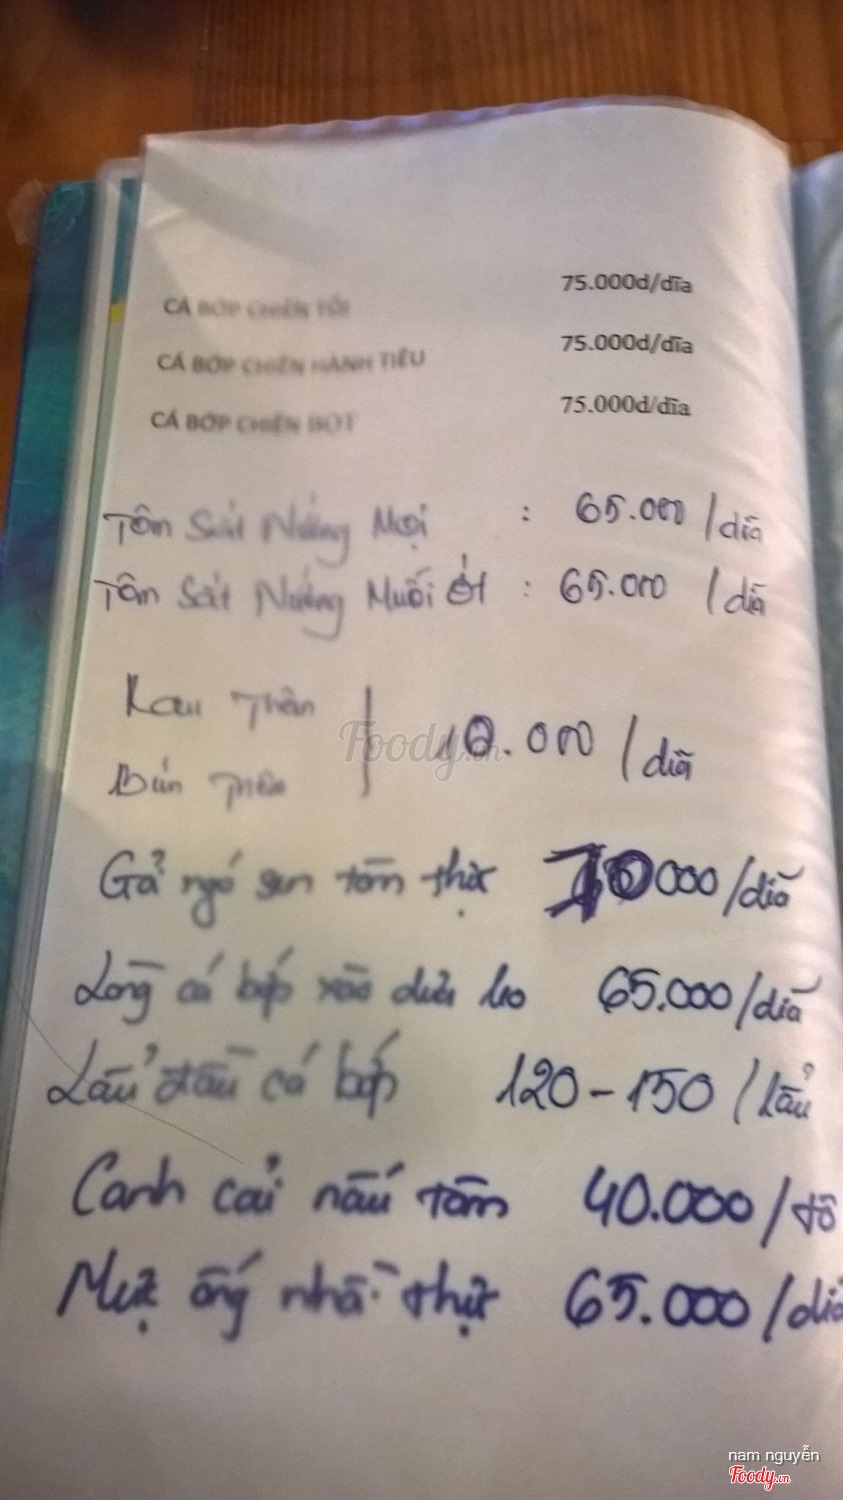 CÁ BỚP CHIÊN TỎI 75.000đ/dĩa
CÁ BỚP CHIÊN HÀNH TIÊU 75.000đ/dĩa
CÁ BỚP CHIÊN BỘT 75.000đ/dĩa
Tôm Sắt Nướng Mọi : 65.000 /dĩa
Tôm Sắt Nướng Muối Ớt : 65.000 /dĩa
Rau Thêm
10.000 /dĩa
Bún Thêm
Gỏi ngó sen tôm thịt 000/dĩa
Lòng cá bớp xào dưa leo 65.000/dĩa
Lẩu đầu cá bớp 120-150 /lẩu
Canh cải nấu tôm 40.000/tô
Mực ống nhồi thịt 65.000/dĩa
Foody.vn
nam nguyễn
Foody.vn